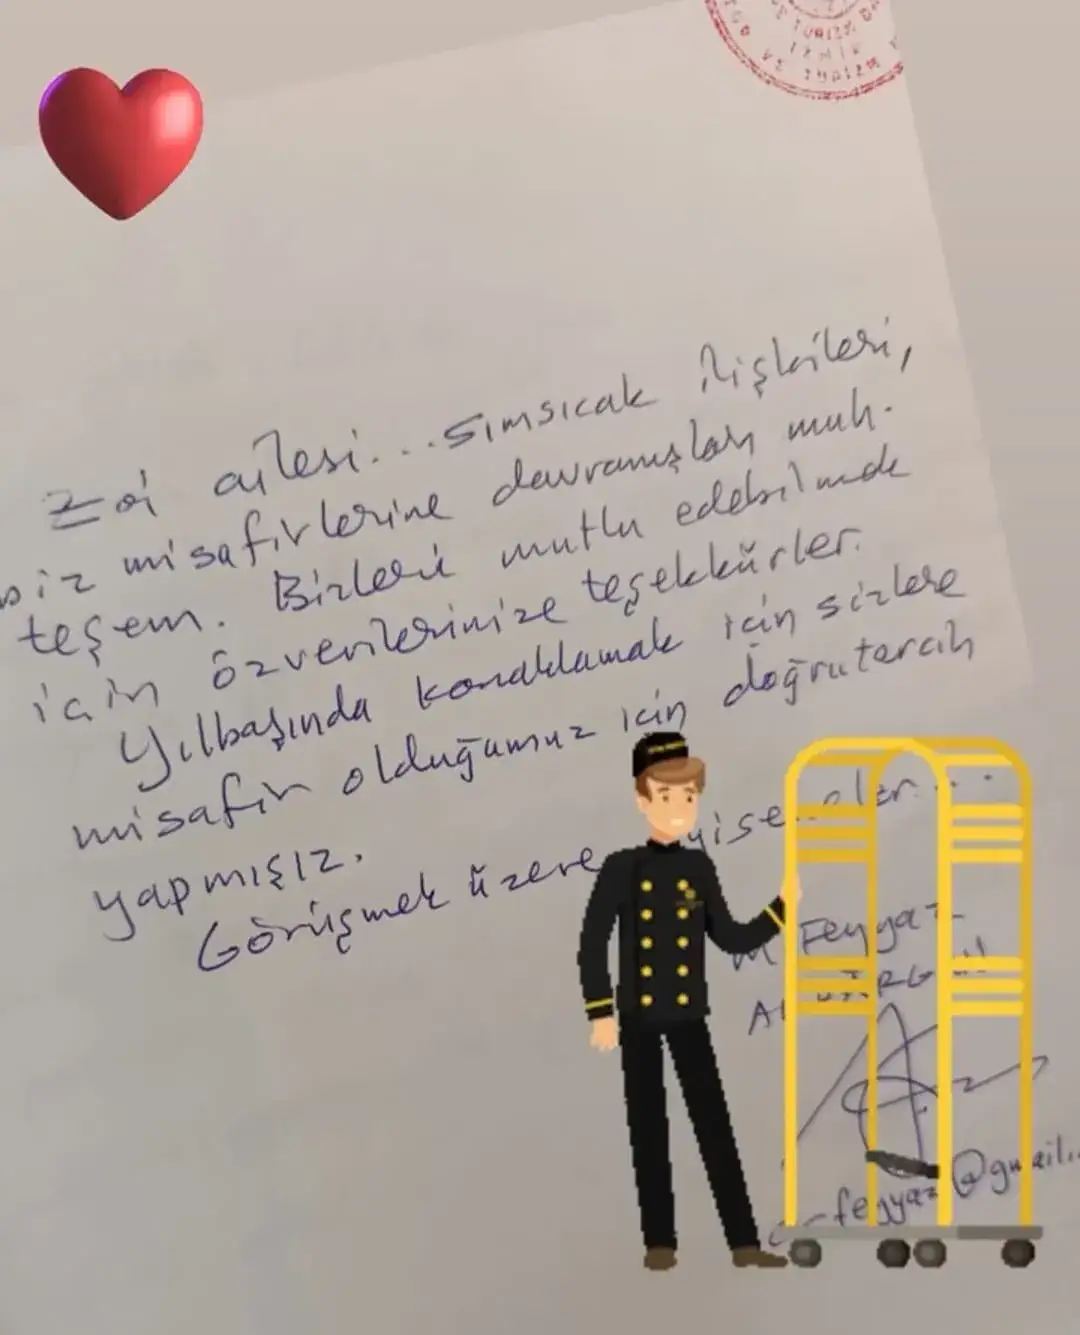 VE TURİZM
İZMİR
VE TURİZM
Zoi ailesi... sımsıcak ilişkileri,
biz misafirlerine davranışları muh-
teşem. Bizleri mutlu edebilmek
için özverilerinize teşekkürler.
Yılbaşında konaklamak için sizlere
misafir olduğumuz için doğru tercih
yapmışız.
Görüşmek üzere
M Feyyaz
feyyaz@gmail.